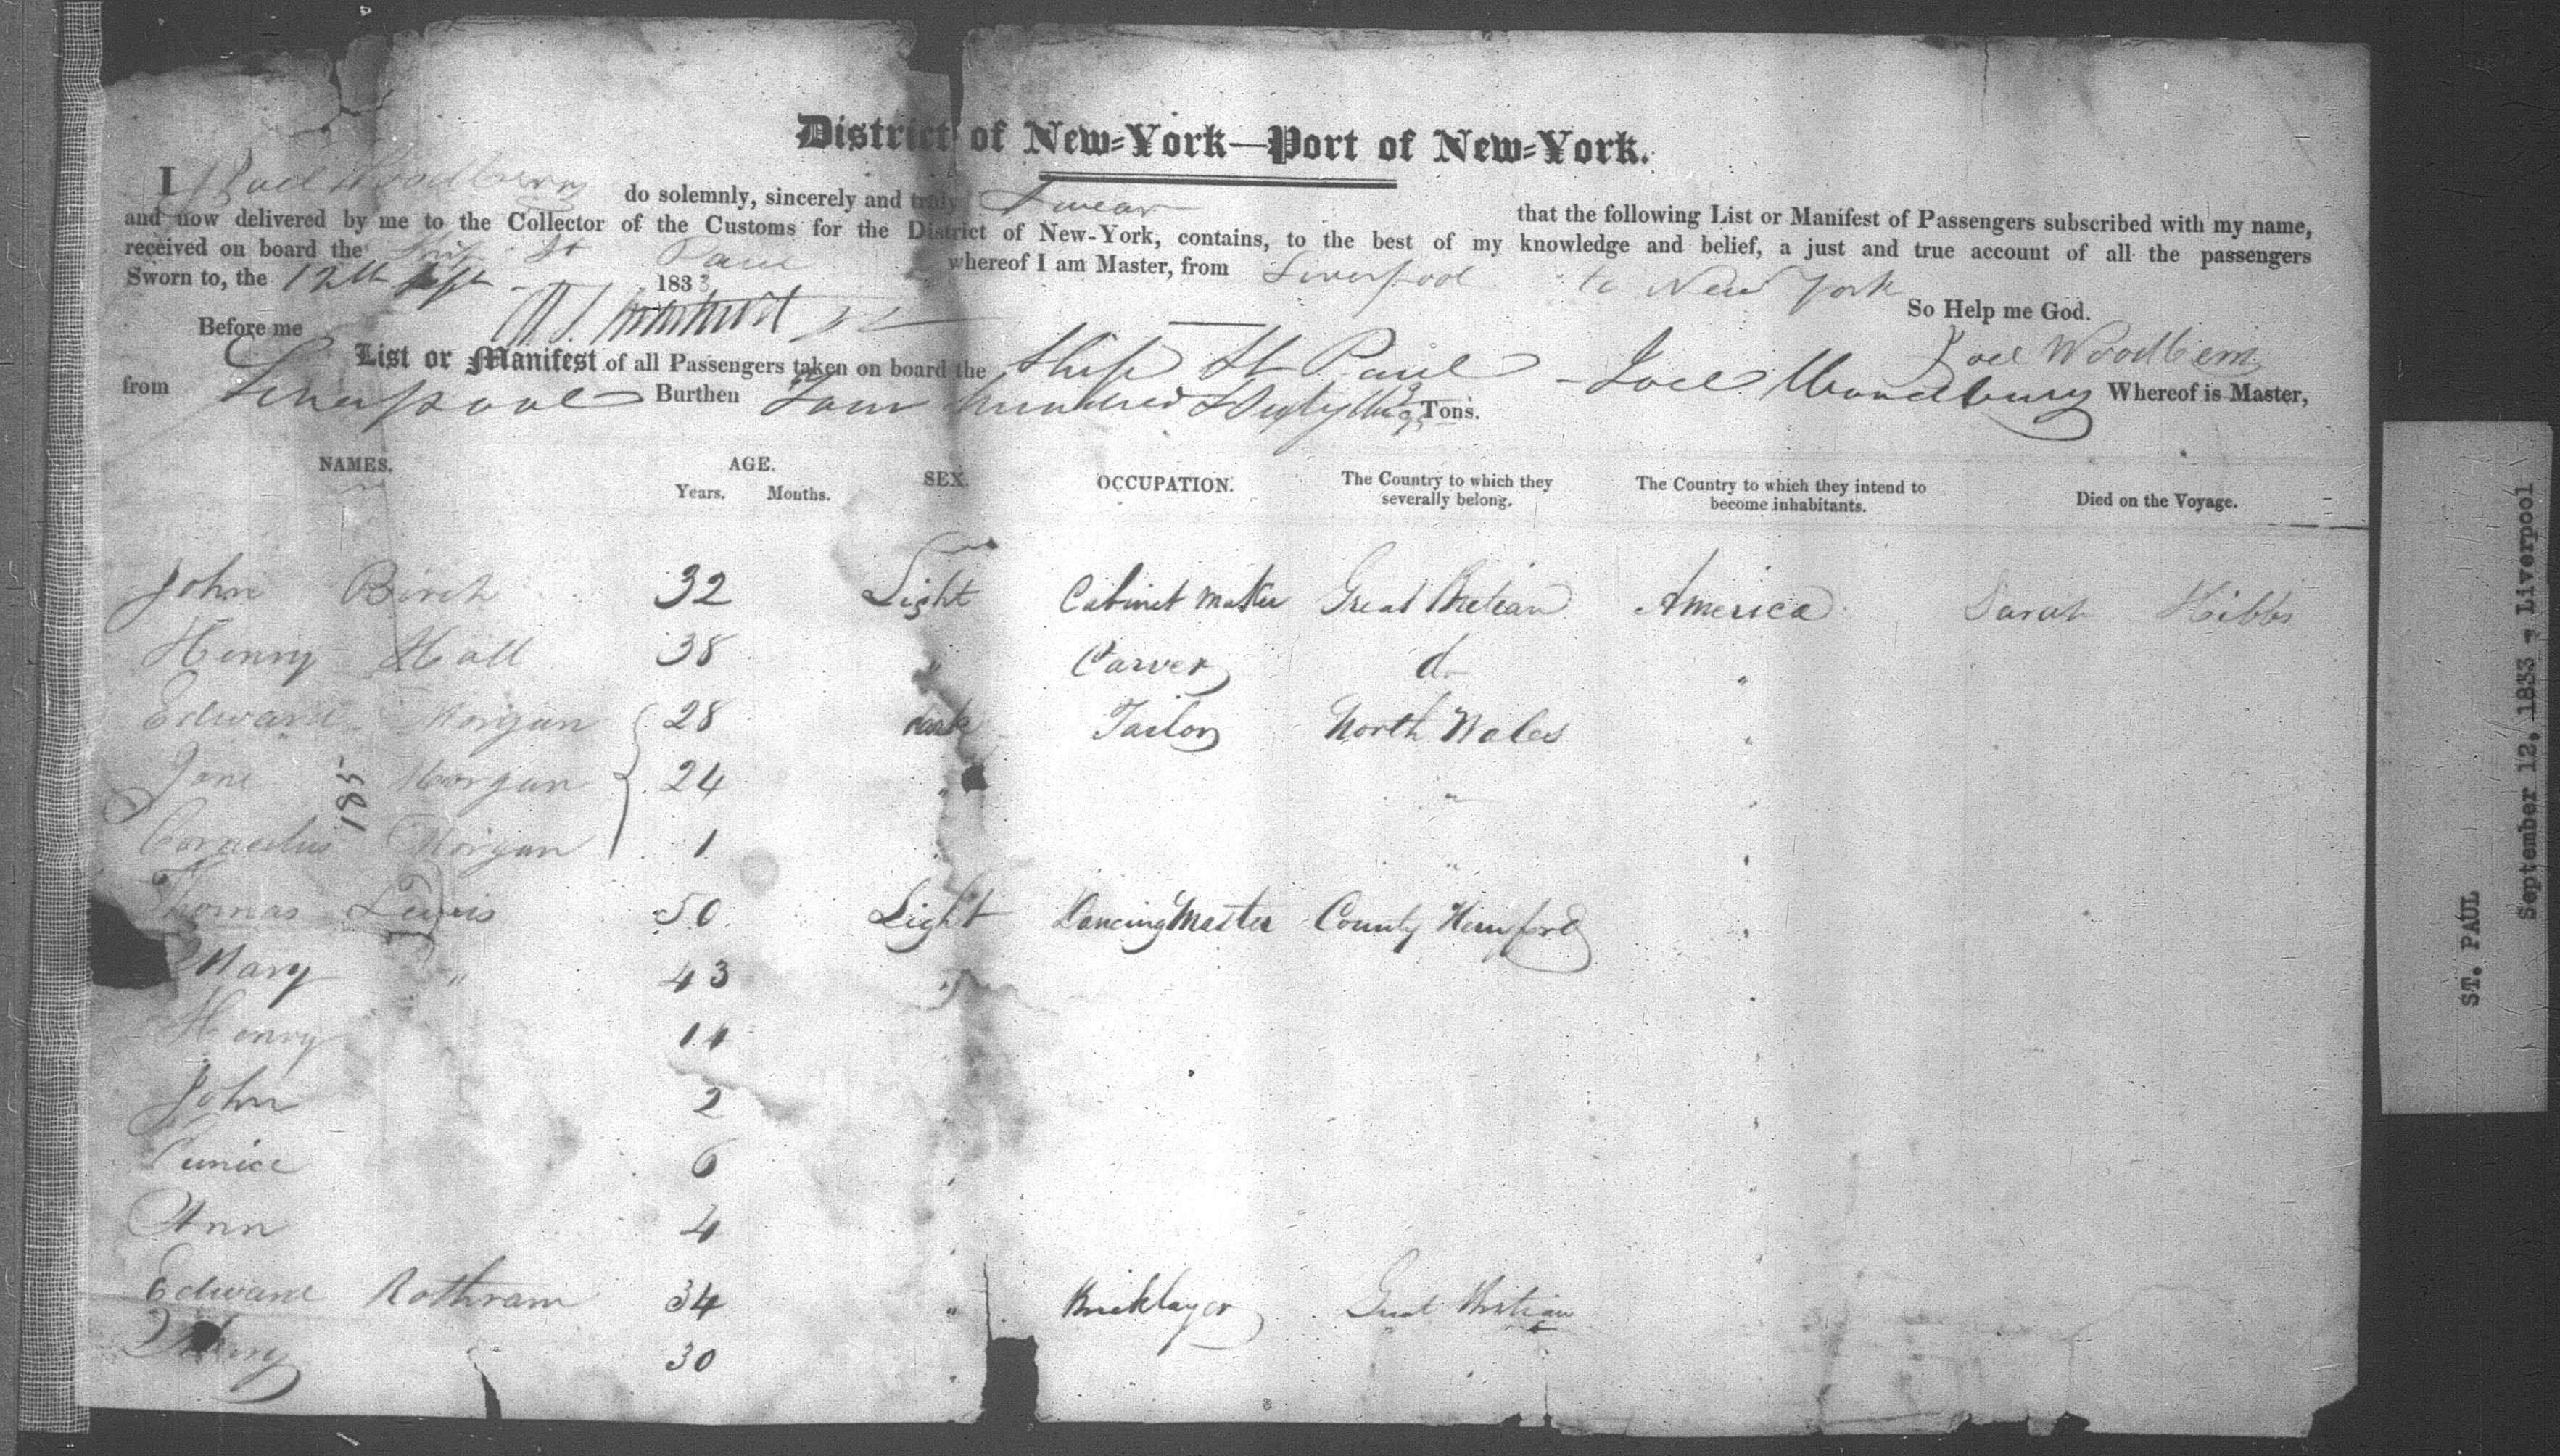 District of New-York—Port of New-York.
I Joel Woodberry do solemnly, sincerely and truly Swear that the following List or Manifest of Passengers subscribed with my name,
and now delivered by me to the Collector of the Customs for the District of New-York, contains, to the best of my knowledge and belief, a just and true account of all the passengers
received on board the Ship St Paul whereof I am Master, from Liverpool to New York
Sworn to, the 12th Sept 1833 So Help me God.
Before me Joel Woodberry
List or Manifest of all Passengers taken on board the Ship St Paul Joel Woodbury Whereof is Master,
from Liverpool Burthen Four hundred Tons.
NAMES. AGE. SEX. OCCUPATION. The Country to which they severally belong. The Country to which they intend to become inhabitants. Died on the Voyage.
Years. Months.
John Birch 32 Light Cabinet Maker Great Britian America Sarah Hibbs
Henry Hall 38 " Carver do "
Edward Morgan 28 dark Tailor North Wales "
Jane Morgan 24 " " "
Cornelius Morgan 1 " "
Thomas Lewis 50 Light Dancing Master County "
Mary " 43 "
Henry 14
John 2
Eunice 6
Ann 4
Edward Rothram 34 " Bricklayer Great Britian
Mary 30 "
185
ST. PAUL
September 12, 1833 - Liverpool